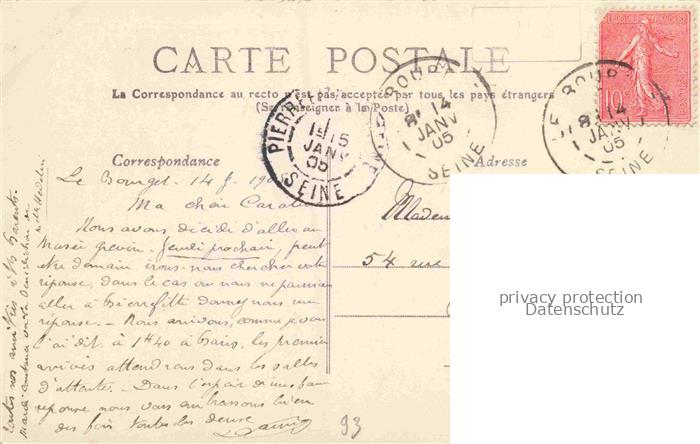 CARTE POSTALE
La Correspondance au recto n'est pas acceptée par tous les pays étrangers
(Se renseigner à la Poste)
Correspondance
Adresse
REPUBLIQUE FRANÇAISE
10c
POSTES
PIERREFITTE
15
JANV
05
SEINE
LE BOURGET
8 14
JANV
05
SEINE
LE BOURGET
8 14
JANV
05
SEINE
Le Bourget - 14 J. 190
Ma chère
Nous avons décidé d'aller au
Musée Grévin - Jeudi prochain, peut
être demain irons-nous chercher votre
réponse, dans le cas où nous ne pourrions
aller à Pierrefitte donnez nous une
réponse. - Nous arrivons, comme je vous
l'ai dit à 1H40 à Paris, les premiers
arrivés attendront dans les salles
d'attente. - Dans l'espoir de une bonne
réponse nous vous embrassons bien
des fois toutes les deux
Madem
54 rue
93
toutes nos amitiés à vos parents.
privacy protection
Datenschutz